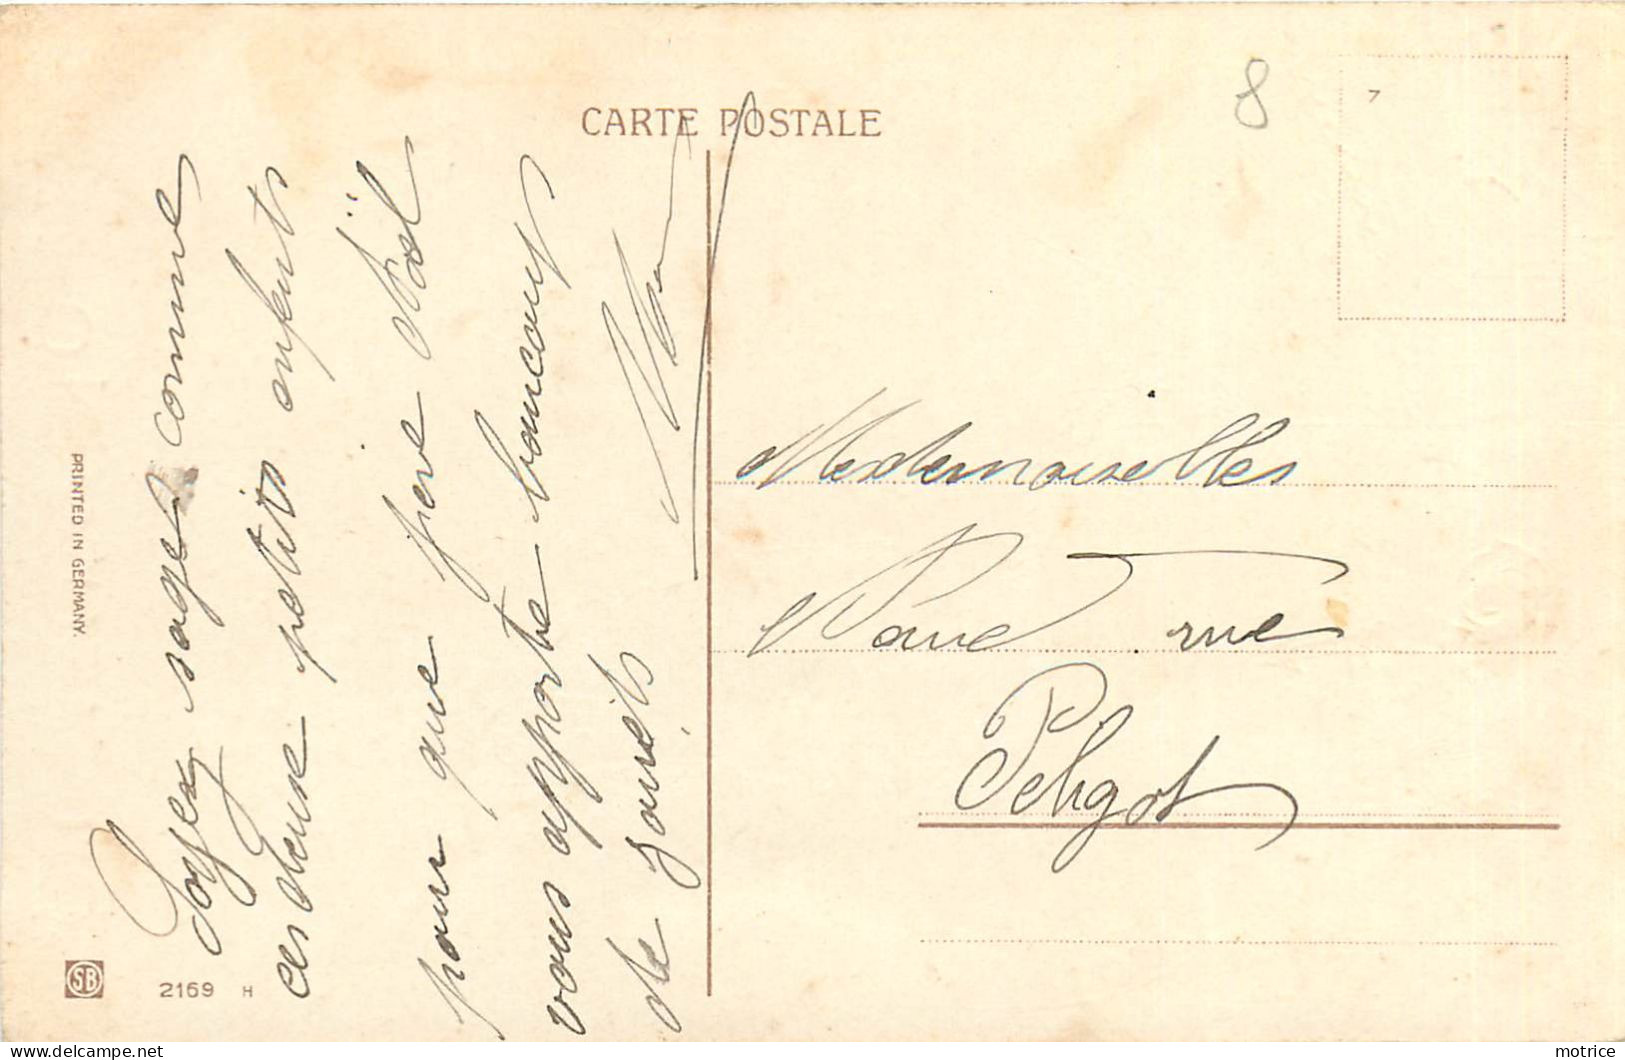 CARTE POSTALE
8
7
Soyez sages comme
ces deux petits enfants
pour que père Noël
vous apporte beaucoup
de jouets
Mesdemoiselles
rue
Peligot
PRINTED IN GERMANY.
SB
2169 H
delcampe.net
motrice